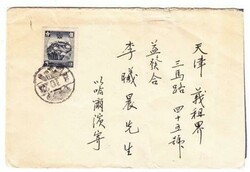 天津 義租界
三馬路 四十五號
益發合
李曦晨先生
以哈爾濱寄